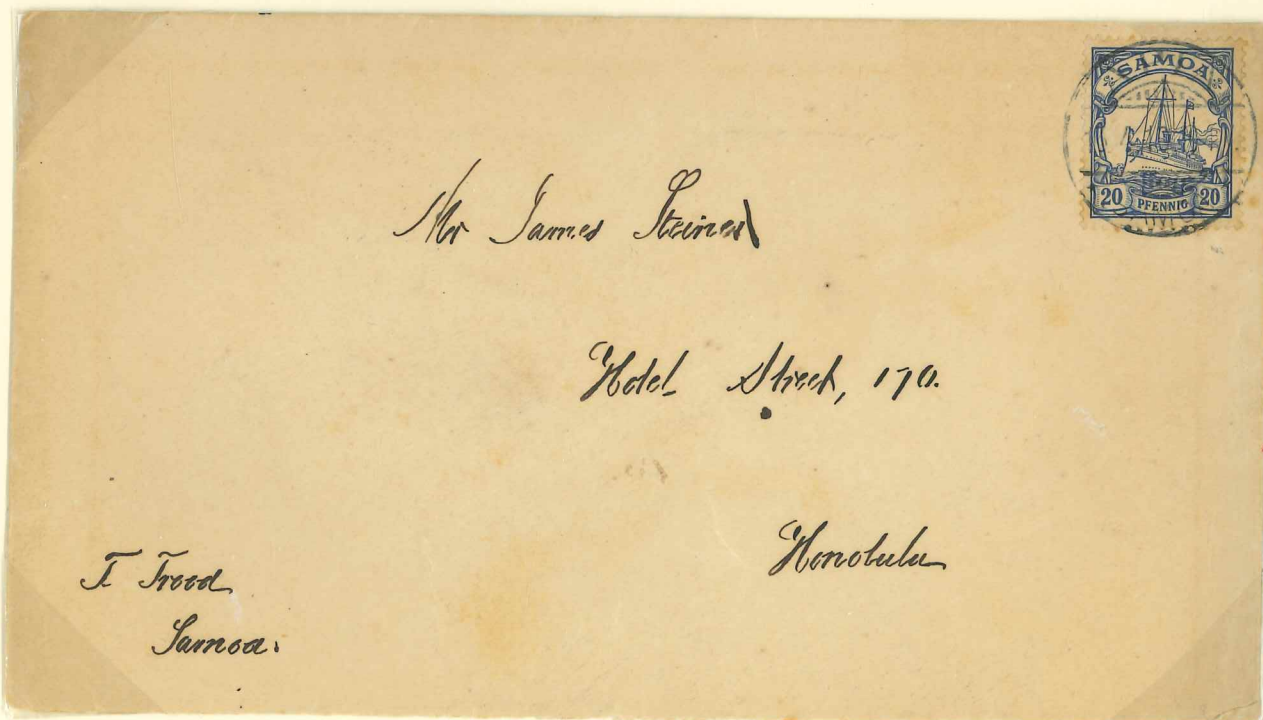 SAMOA
20 PFENNIG 20
Mr James Steiner
Hotel Street, 170.
Honolulu
T. Trood
Samoa.